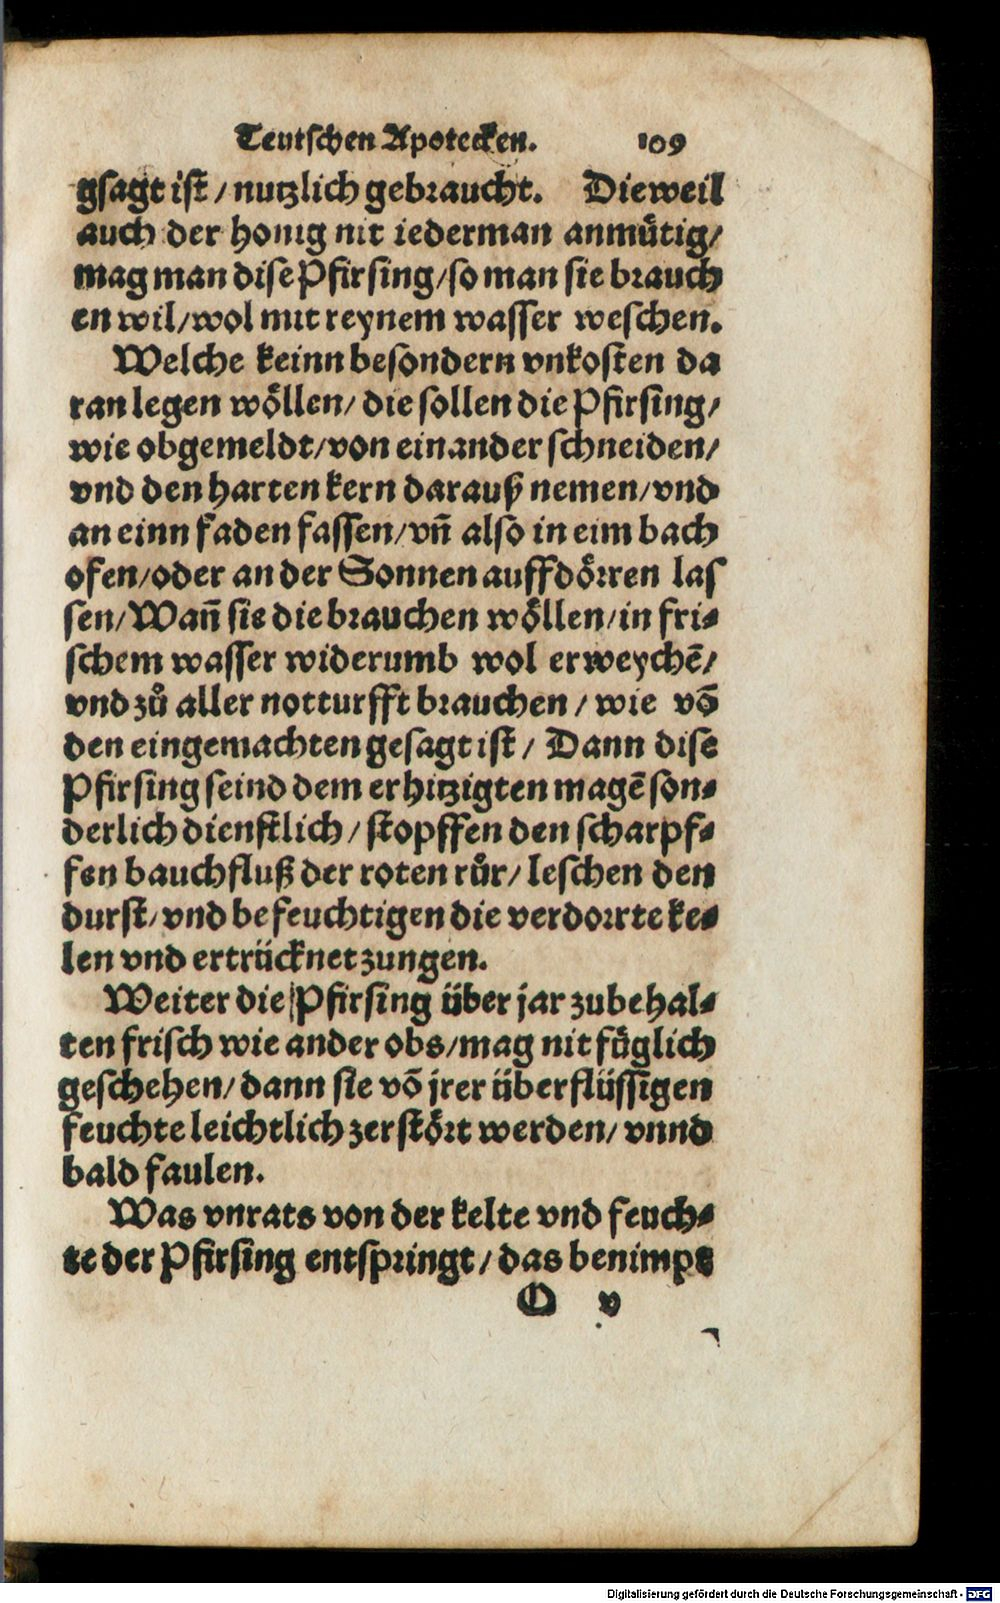 Teutschen Apotecken. 109
gsagt ist / nutzlich gebraucht. Dieweil
auch der honig nit iederman anmůtig/
mag man dise Pfirsing/so man sie brauch
en wil/wol mit reynem wasser weschen.
Welche keinn besondern vnkosten da
ran legen wöllen/ die sollen die Pfirsing/
wie obgemeldt/von einander schneiden/
vnd den harten kern darauß nemen/vnd
an einn faden fassen/vñ also in eim bach
ofen/oder an der Sonnen auffdörren las
sen/Wañ sie die brauchen wöllen/in fri⸗
schem wasser widerumb wol erweychē/
vnd zů aller notturfft brauchen / wie vō
den eingemachten gesagt ist / Dann dise
Pfirsing seind dem erhitzigten magē son⸗
derlich dienstlich / stopffen den scharpf⸗
fen bauchfluß der roten růr/ leschen den
durst/vnd befeuchtigen die verdorrte ke⸗
len vnd ertrücknet zungen.
Weiter die Pfirsing über jar zubehal⸗
ten frisch wie ander obs/mag nit fůglich
geschehen/ dann sie vō jrer überflüssigen
feuchte leichtlich zerstört werden/ vnnd
bald faulen.
Was vnrats von der kelte vnd feuch⸗
te der Pfirsing entspringt / das benimpt
O v
Digitalisierung gefördert durch die Deutsche Forschungsgemeinschaft - DFG